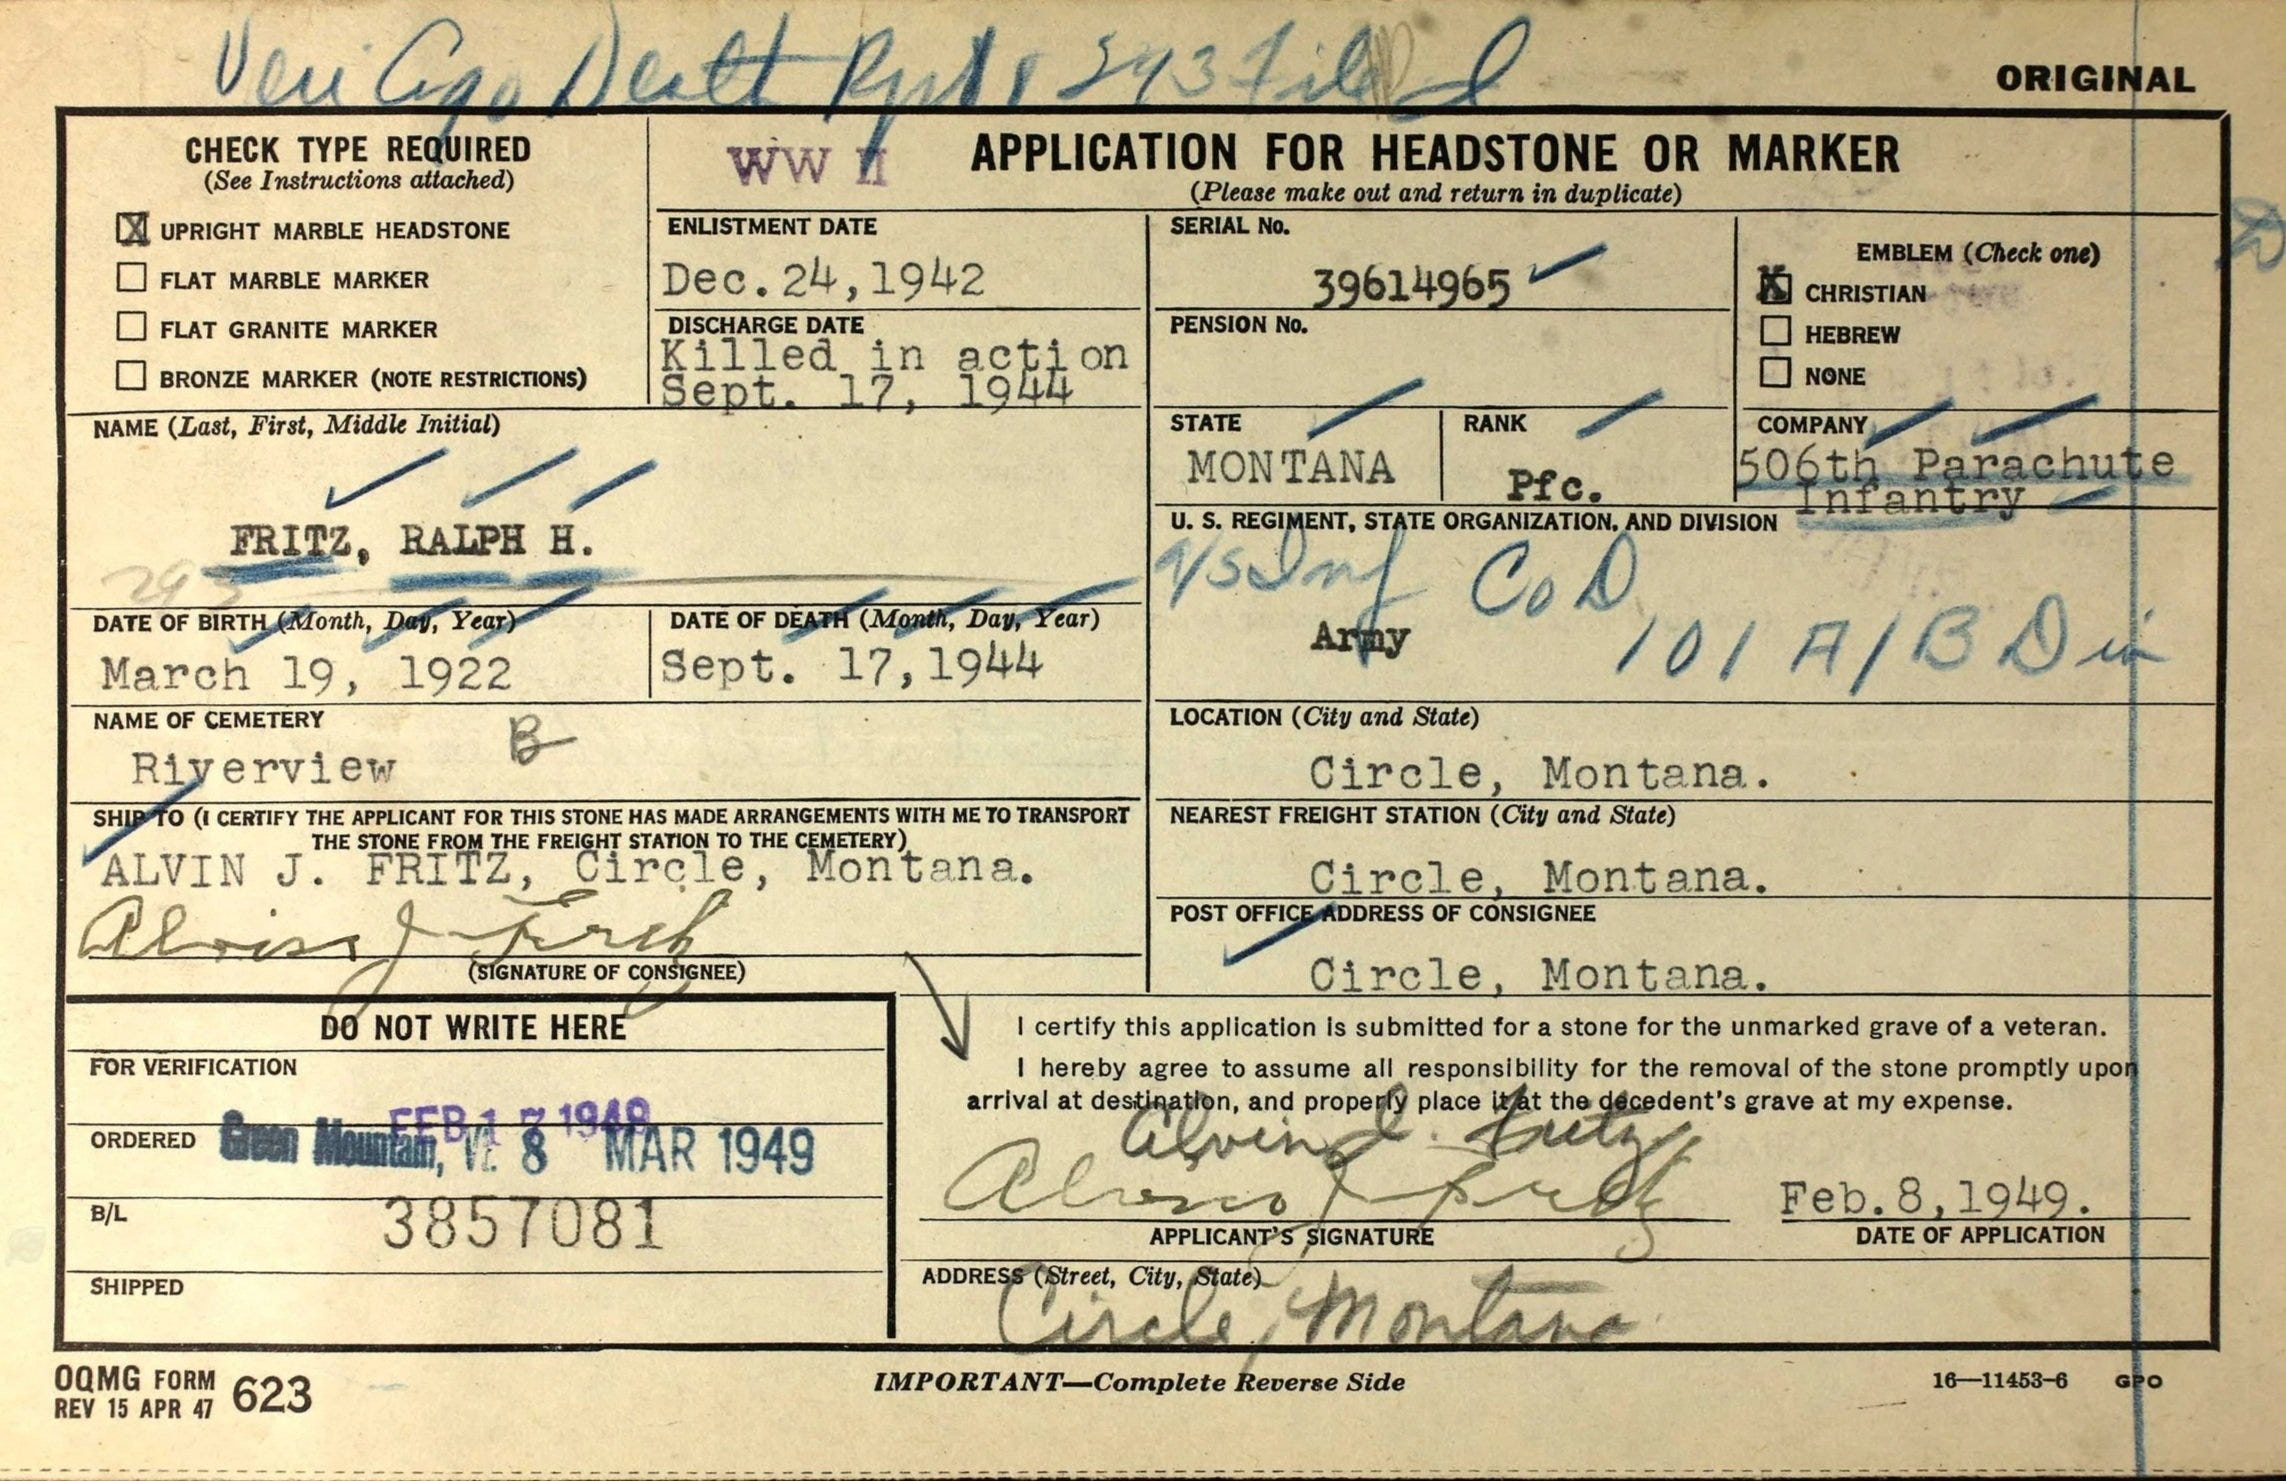 Veri Death Rpt & 293 File
ORIGINAL
CHECK TYPE REQUIRED
(See Instructions attached)
X UPRIGHT MARBLE HEADSTONE
FLAT MARBLE MARKER
FLAT GRANITE MARKER
BRONZE MARKER (NOTE RESTRICTIONS)
WW II
APPLICATION FOR HEADSTONE OR MARKER
(Please make out and return in duplicate)
ENLISTMENT DATE
Dec. 24, 1942
DISCHARGE DATE
Killed in action
Sept. 17, 1944
SERIAL No.
39614965
PENSION No.
EMBLEM (Check one)
X CHRISTIAN
HEBREW
NONE
NAME (Last, First, Middle Initial)
FRITZ, RALPH H.
293
STATE
MONTANA
RANK
Pfc.
COMPANY
506th Parachute
Infantry
U. S. REGIMENT, STATE ORGANIZATION, AND DIVISION
Inf Co D
Army
101 A/B Div
DATE OF BIRTH (Month, Day, Year)
March 19, 1922
DATE OF DEATH (Month, Day, Year)
Sept. 17, 1944
NAME OF CEMETERY
Riverview B
LOCATION (City and State)
Circle, Montana.
SHIP TO (I CERTIFY THE APPLICANT FOR THIS STONE HAS MADE ARRANGEMENTS WITH ME TO TRANSPORT
THE STONE FROM THE FREIGHT STATION TO THE CEMETERY)
ALVIN J. FRITZ, Circle, Montana.
Alvin J Fritz
(SIGNATURE OF CONSIGNEE)
NEAREST FREIGHT STATION (City and State)
Circle, Montana.
POST OFFICE ADDRESS OF CONSIGNEE
Circle, Montana.
DO NOT WRITE HERE
FOR VERIFICATION
FEB 17 1949
ORDERED Green Mountain, Vt. 8 MAR 1949
B/L
3857081
SHIPPED
I certify this application is submitted for a stone for the unmarked grave of a veteran.
I hereby agree to assume all responsibility for the removal of the stone promptly upon
arrival at destination, and properly place it at the decedent's grave at my expense.
Alvin J. Fritz
Alvin J Fritz
APPLICANT'S SIGNATURE
Feb. 8, 1949.
DATE OF APPLICATION
ADDRESS (Street, City, State)
Circle, Montana
OQMG FORM 623
REV 15 APR 47
IMPORTANT—Complete Reverse Side
16—11453-6 GPO